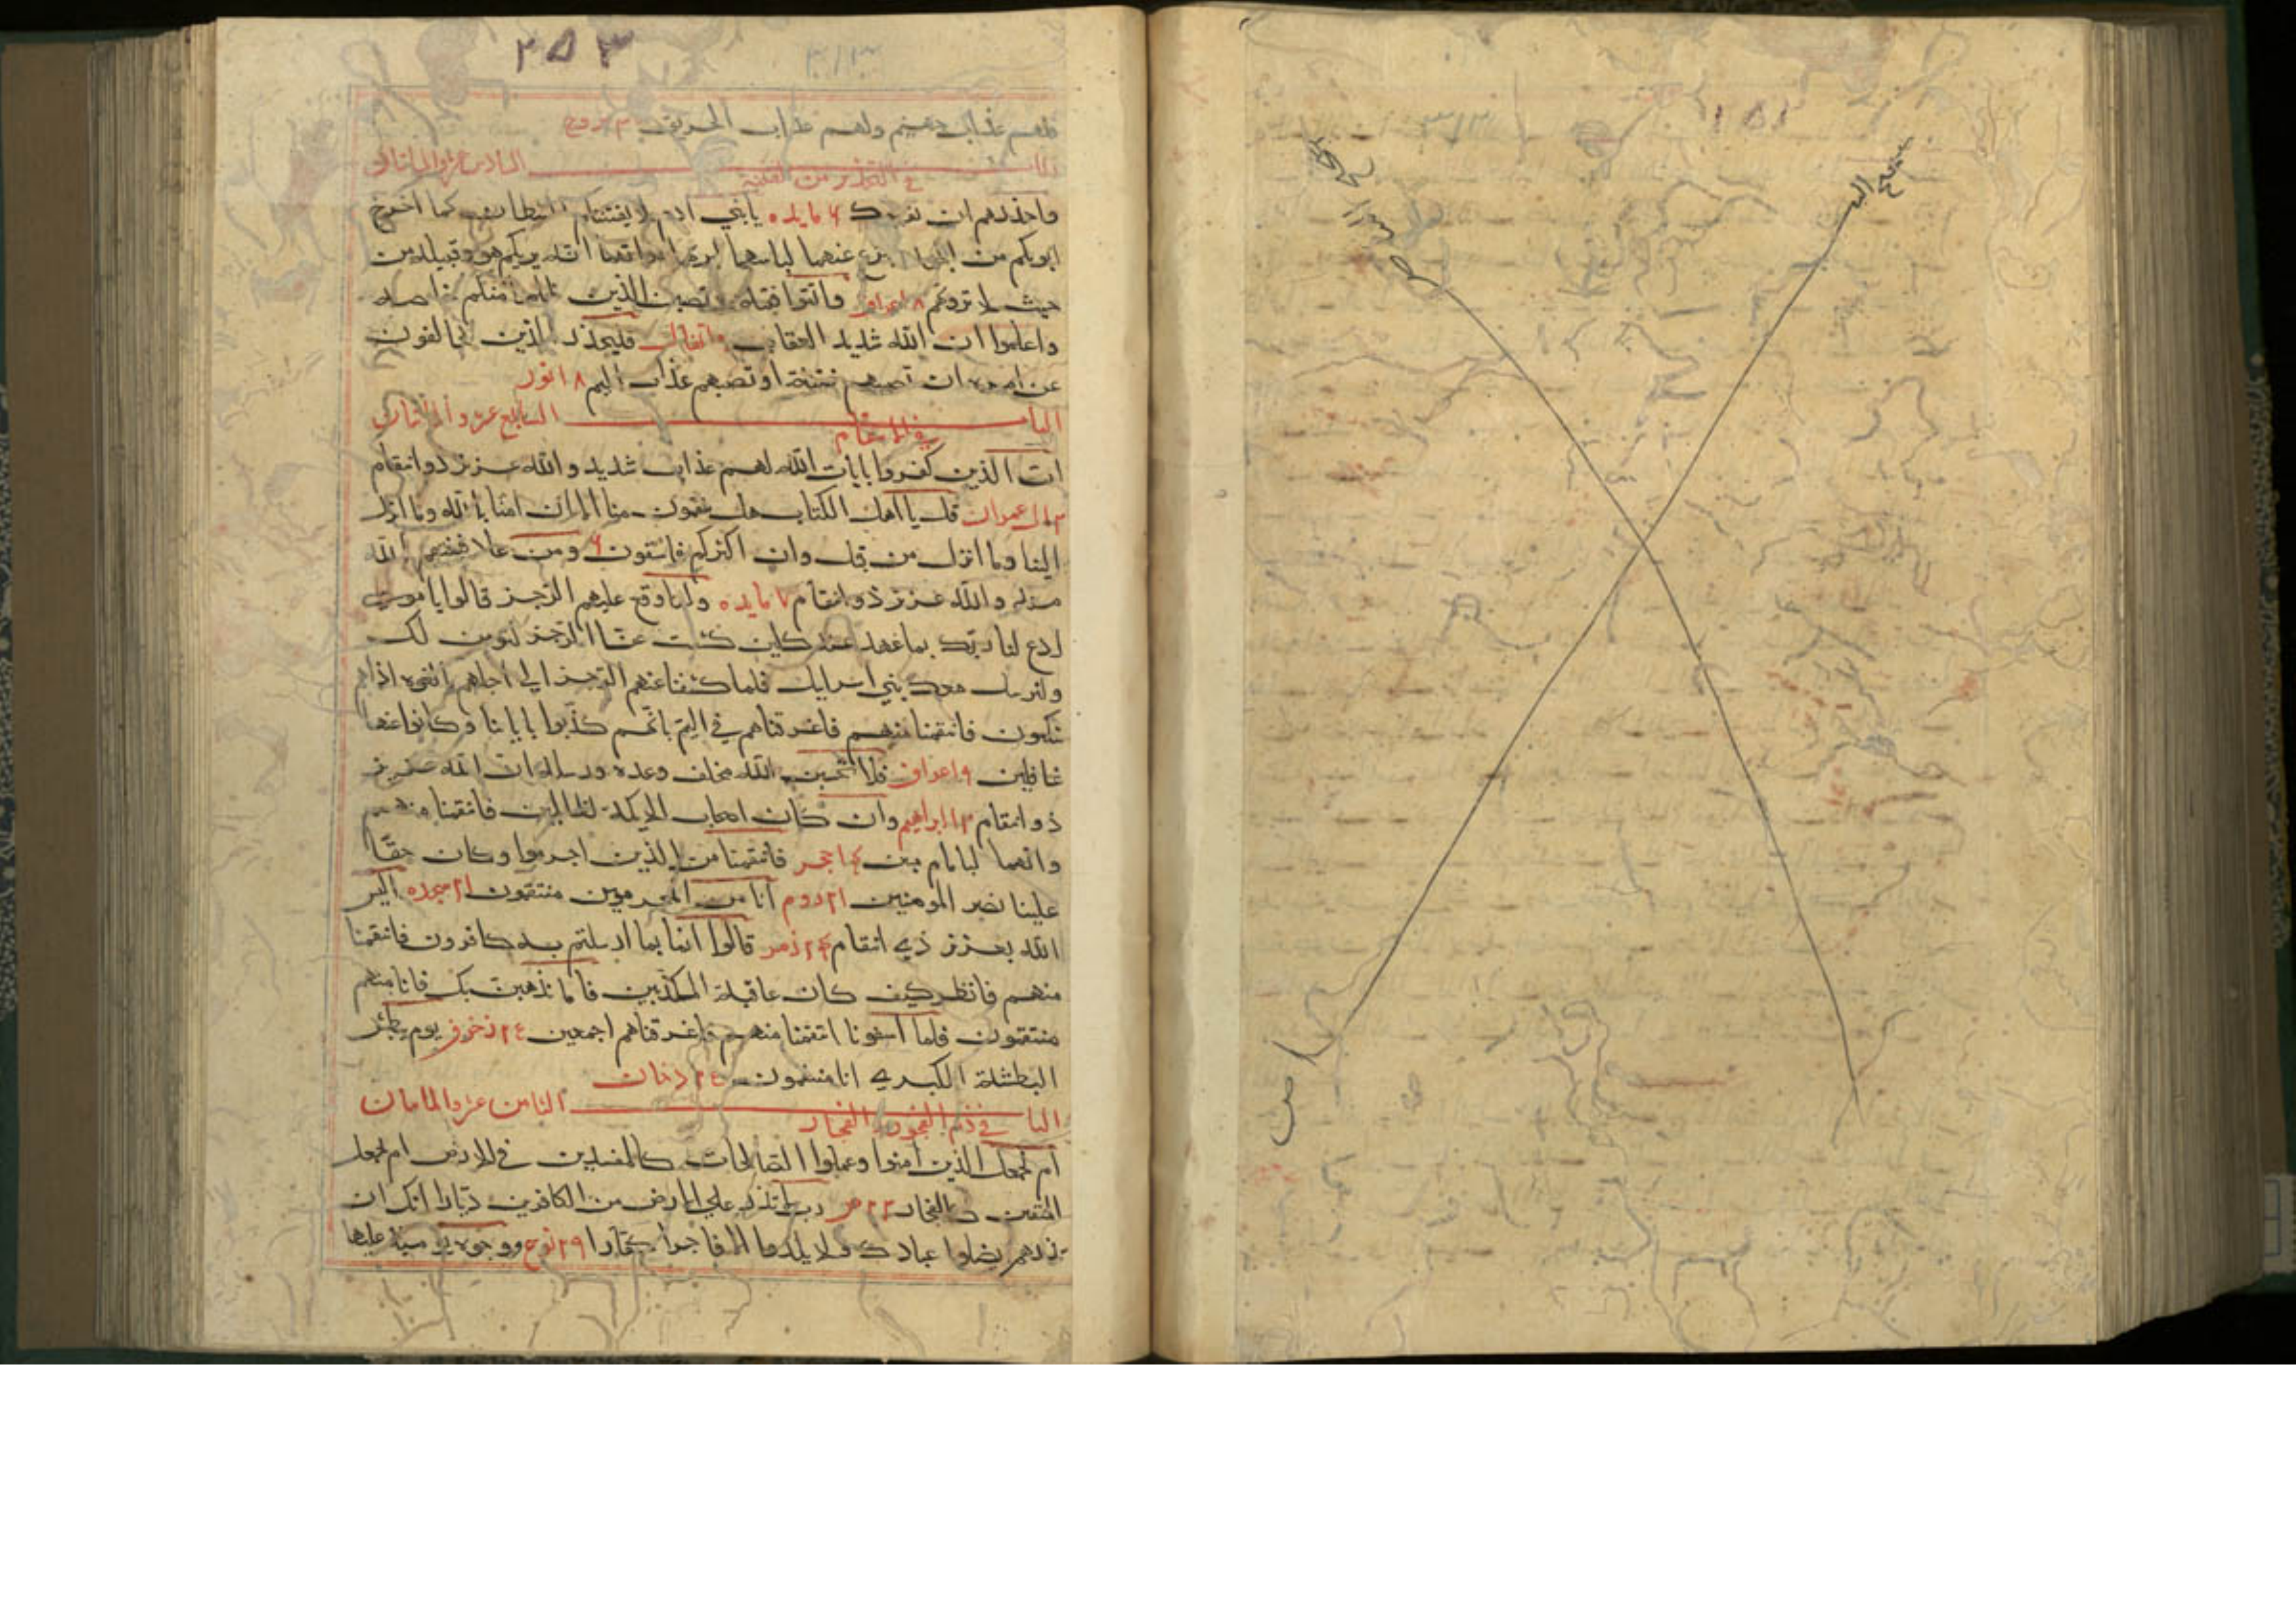 ٢٥٣
٣١٣
فلهم عذاب جهنم ولهم عذاب الحريق ٣٠ بروج
السادس عشر والمائتان
في التحذير من الفتنة
واحذرهم ان يفتنوك ٦ مايده يا بني ادم لا يفتننكم الشيطان كما اخرج
ابويكم من الجنة ينزع عنهما لباسهما ليريهما سواتهما انه يريكم هو وقبيله من
حيث لا ترونهم ٨ اعراف واتقوا فتنة لا تصيبن الذين ظلموا منكم خاصة
واعلموا ان الله شديد العقاب ٩ انفال فليحذر الذين يخالفون
عن امره ان تصيبهم فتنة او تصيبهم عذاب اليم ١٨ نور
الباب السابع عشر والمائتان
في الانتقام
ان الذين كفروا بايات الله لهم عذاب شديد والله عزيز ذو انتقام
٣ ال عمران قل يا اهل الكتاب هل تنقمون منا الا ان امنا بالله وما انزل
الينا وما انزل من قبل وان اكثركم فاسقون ٦ ومن عاد فينتقم الله
منه والله عزيز ذو انتقام ٧ مايده ولما وقع عليهم الرجز قالوا يا موسى
ادع لنا ربك بما عهد عندك لين كشفت عنا الرجز لنومنن لك
ولنرسلن معك بني اسرايل فلما كشفنا عنهم الرجز الي اجل هم بالغوه اذا هم
ينكثون فانتقمنا منهم فاغرقناهم في اليم بانهم كذبوا باياتنا وكانوا عنها
غافلين ٩ اعراف فلا تحسبن الله مخلف وعده رسله ان الله عزيز
ذو انتقام ١٣ ابراهيم وان كان اصحاب الايكة لظالمين فانتقمنا منهم
وانهما لبامام مبين ١٤ حجر فانتقمنا من الذين اجرموا وكان حقا
علينا نصر المومنين ٢١ روم انا من المجرمين منتقمون ٢١ سجده اليس
الله بعزيز ذي انتقام ٢٤ زمر قالوا انا بما ارسلتم به كافرون فانتقمنا
منهم فانظر كيف كان عاقبة المكذبين فاما نذهبن بك فانا منهم
منتقمون فلما اسفونا انتقمنا منهم فاغرقناهم اجمعين ٢٤ زخرف يوم نبطش
البطشة الكبري انا منتقمون ٢٤ دخان
الباب الثامن عشر والمائتان
في ذم الفجور والفجار
ام نجعل الذين امنوا وعملوا الصالحات كالمفسدين في الارض ام نجعل
المتقين كالفجار ٢٣ ص رب لا تذر علي الارض من الكافرين ديارا انك ان
تذرهم يضلوا عبادك ولا يلدوا الا فاجرا كفارا ٢٩ نوح ووجوه يومئذ عليها